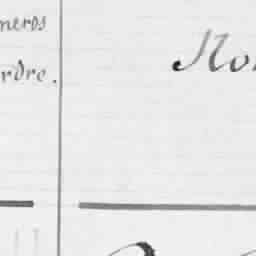 meros
rdre.
No